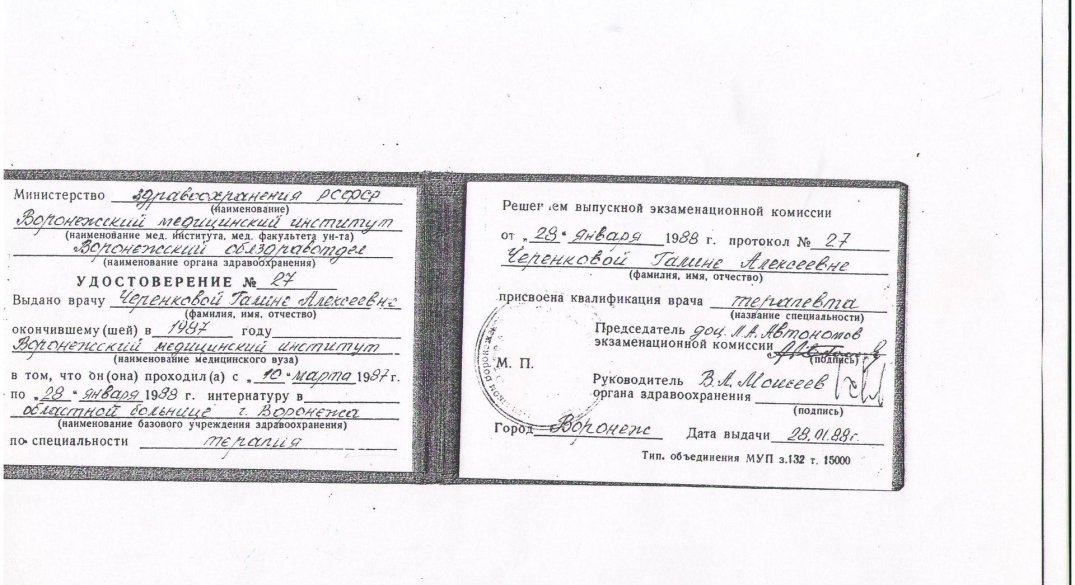 Министерство здравоохранения РСФСР
(наименование)
Воронежский медицинский институт
(наименование мед. института, мед. факультета ун-та)
Воронежский облздравотдел
(наименование органа здравоохранения)
УДОСТОВЕРЕНИЕ № 27
Выдано врачу Черенковой Галине Алексеевне
(фамилия, имя, отчество)
окончившему (шей) в 1987 году
Воронежский медицинский институт
(наименование медицинского вуза)
в том, что он (она) проходил (а) с „10" марта 1987 г.
по „28" января 1988 г. интернатуру в
областной больнице г. Воронежа
(наименование базового учреждения здравоохранения)
по специальности терапия
Решением выпускной экзаменационной комиссии
от „28" января 1988 г. протокол № 27
Черенковой Галине Алексеевне
(фамилия, имя, отчество)
присвоена квалификация врача терапевта
(название специальности)
Председатель доц. Л.А. Автономов
экзаменационной комиссии
(подпись)
М. П.
Руководитель В.А. Моисеев
органа здравоохранения
(подпись)
Город Воронеж Дата выдачи 28.01.88г.
Тип. объединения МУП з.132 т. 15000